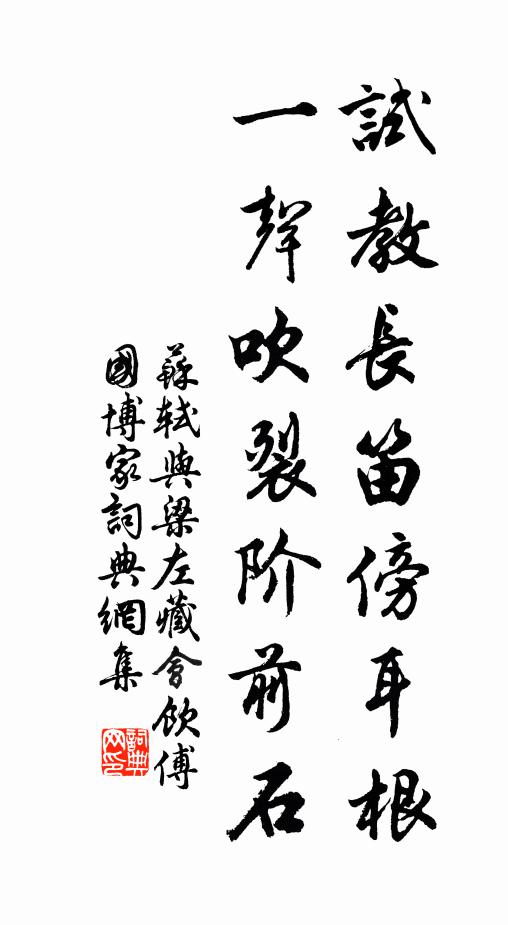 試教長笛傍耳根
一聲吹裂阶前石
蘇軾與梁左藏會飲傅
國博家詞典網集
詞典
网印